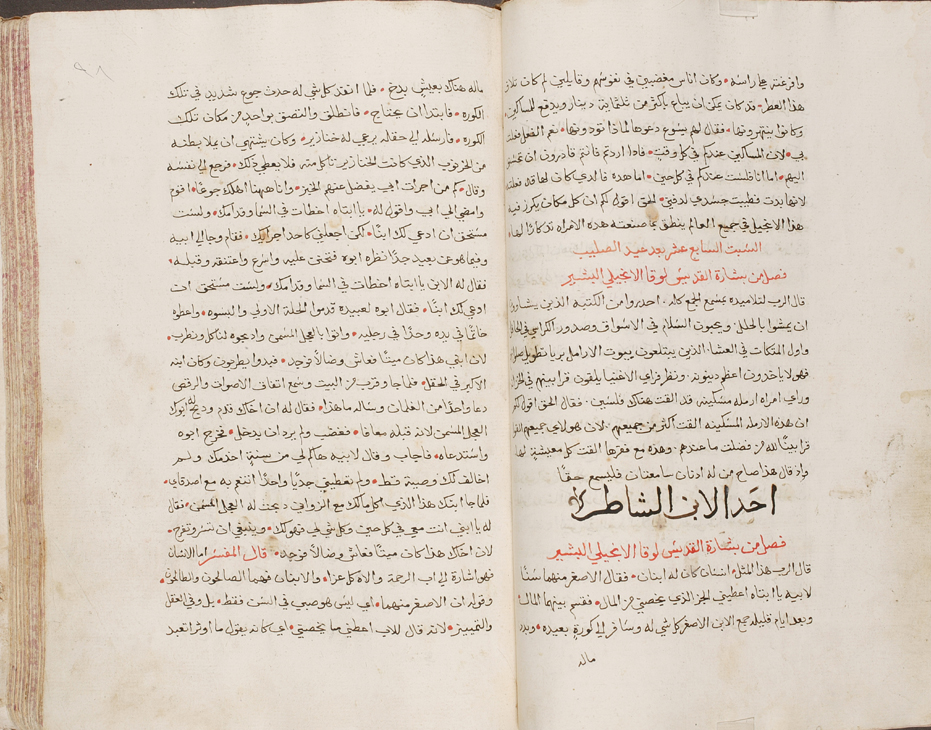 وافرغته علي راسه • وكان اناس مغضبين في نفوسهم وقايلين لم كان تلاف
هذا العطر • قد كان يمكن ان يباع باكثر من ثلثماية دينار ويدفع للمساكين •
وكانوا ينتهرونها • فقال لهم يسوع دعوها لماذا توذونها • نعم الفعل فعلت
بي • لان المساكين عندكم في كل وقت • فاذا اردتم فانتم قادرون ان تحسنوا
اليهم • اما انا فلست عندكم في كل حين • اما هذه فالذي كان لها قد فعلته
لانها بدت فطيبت جسدي لدفني • الحق اقول لكم ان كل مكان يكرز فيه
هذا الانجيل في جميع العالم ينطق بما صنعته هذه الامراه تذكارًا لها •
السبت السابع عشر بعد عيد الصليب
فصل من بشارة القديس لوقا الانجيلي البشير
قال الرب لتلاميذه بمسمع الجمع كله • احذروا من الكتبه الذين يشاوون
ان يمشوا بالحلل • ويحبون السلام في الاسواق وصدور الكراسي في
واول المتكات في العشا • الذين يبتلعون بيوت الارامل برياء تطويل صلواتهم
فهولا ياخذون اعظم دينونه • ونظر فراي الاغنيا يلقون قرابينهم في الخزانه
وراي امراه ارمله مسكينه قد القت هناك فلسين • فقال الحق اقول لكم
ان هذه الارمله المسكينه القت اكثر من جميعهم • لان هولاي جميعهم القوا
قرابينًا لله من فضلت ما عندهم • وهذه مع فقرها القت كل معيشة لها
واذ قال هذا صاح من له اذنان سامعتان فليسمع حقًا
احد الابن الشاطر
فصل من بشارة القديس لوقا الانجيلي البشير
قال الرب هذا المثل • انسان كان له ابنان • فقال الاصغر منهما سنًا
لابيه يا ابتاه اعطيني الجز الذي يخصني من المال • فقسم بينهما المال
وبعد ايام قليله جمع الابن الاصغر كل شي له وسافر الي كورة بعيده • وبدد
ماله
ماله هناك بعيش بذخ • فلما انفد كل شي له حدث جوع شديد في تلك
الكوره • فابتدا ان يحتاج • فانطلق والتصق بواحد من سكان تلك
الكوره • فارسله الي حقله يرعي له خنازير • وكان يشتهي ان يملا بطنه
من الخرنوب الذي كانت الخنازير تاكل منه فلا يعطي ذلك • فرجع الي نفسه
وقال • كم من اجرات ابي يفضل عنهم الخبز • وانا ههنا اهلك جوعًا • اقوم
وامضي الي ابي واقول له • يا ابتاه اخطات في السما وقدامك • ولست
مستحق ان ادعي لك ابنًا • لكن اجعلني كاحد اجرايك • فقام وجا الي ابيه
وفيما هو عن بعيد جدًا نظره ابوه فتحنن عليه واسرع واعتنقه وقبله •
فقال له الابن يا ابتاه اخطات في السما وقدامك • ولست مستحق ان
ادعي لك ابنًا • فقال ابوه لعبيده قدموا الحلة الاولي والبسوه • واعطوه
خاتمًا في يده وحذًا في رجليه • واتوا بالعجل المسمن واذبحوه لناكل ونطرب •
لان ابني هذا كان ميتًا فعاش وضالًا فوجد • فبدوا يطربون وكان ابنه
الاكبر في الحقل • فلما جا وقرب من البيت وسمع اتفاق الاصوات والرقص
دعا واحدًا من الغلمان وساله ما هذا • فقال له ان اخاك قدم وذبح له ابوك
العجل المسمن لانه قبله معافا • فغضب ولم يرد ان يدخل • فخرج ابوه
واستدعاه • فاجاب وقال لابيه ها كم لي من سنة اخدمك ولم
اخالف لك وصية قط • ولم تعطيني جديًا واحدًا اتنعم به مع اصدقاي •
فلما جا ابنك هذا الذي اكل مالك مع الزواني ذبحت له العجل المسمن • فقال
له يا ابني انت معي في كل حين وكل شي لي فهو لك • وينبغي ان تسر وتفرح •
لان اخاك هذا كان ميتًا فعاش وضالًا فوجد • قال المفسر اما الانسان
فهو اشارة الي اب الرحمة والاه كل عزا • والابنان فهما الصالحون والطالحون •
وقوله ان الاصغر منهما • اي ليس هو صبي في السن فقط • بل وفي العقل
والتمييز • لانه قال للاب اعطني ما يخصني • اي كانه يقول ما اوثر اتعبد